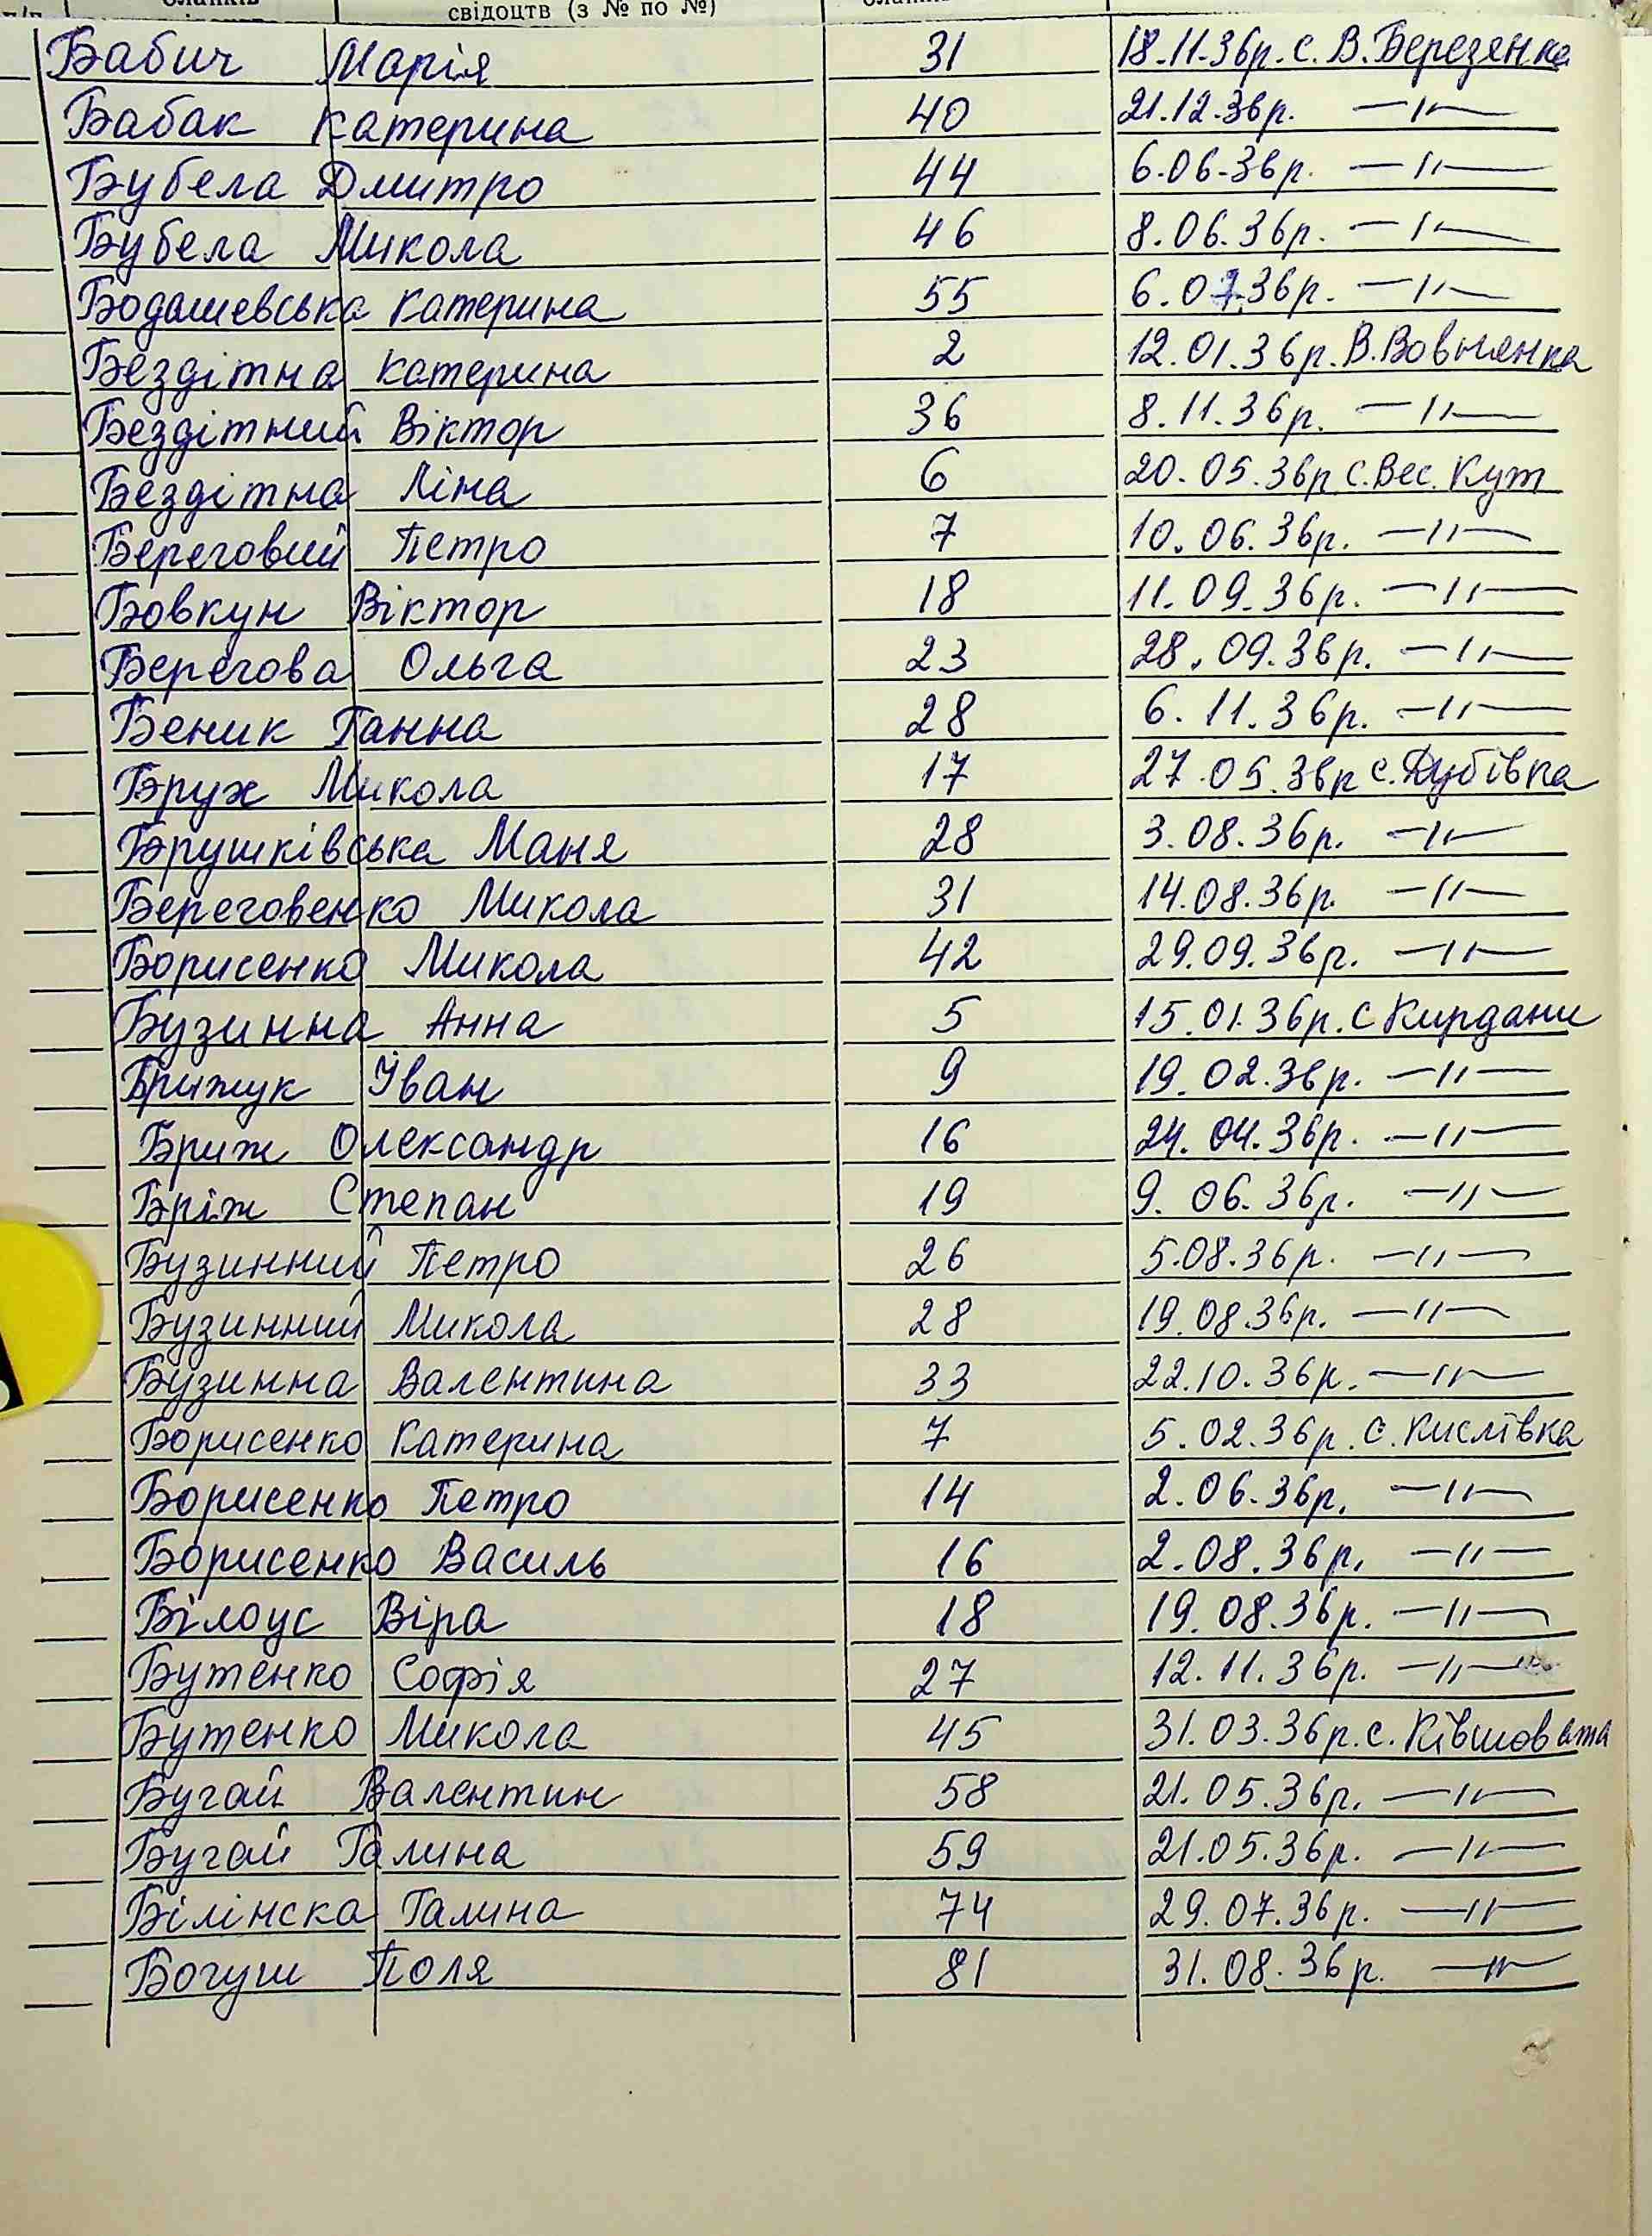 свідоцтв (з № по №)
Бабич Марія 31 18.11.36р. с. В. Березянка
Бабак Катерина 40 21.12.36р. —〃—
Бубела Дмитро 44 6.06.36р. —〃—
Бубела Микола 46 8.06.36р. —〃—
Бодашевська Катерина 55 6.07.36р. —〃—
Бездітна Катерина 2 12.01.36р. В. Вовнянка
Бездітний Віктор 36 8.11.36р. —〃—
Бездітна Ліна 6 20.05.36р с. Вес. Кут
Береговий Петро 7 10.06.36р. —〃—
Бовкун Віктор 18 11.09.36р. —〃—
Берегова Ольга 23 28.09.36р. —〃—
Беник Ганна 28 6.11.36р. —〃—
Брух Микола 17 27.05.36р с. Дубівка
Брушківська Маня 28 3.08.36р. —〃—
Береговенко Микола 31 14.08.36р. —〃—
Борисенко Микола 42 29.09.36р. —〃—
Бузинна Анна 5 15.01.36р. с Кирдани
Брижук Іван 9 19.02.36р. —〃—
Бриж Олександр 16 24.04.36р. —〃—
Бріж Степан 19 9.06.36р. —〃—
Бузинний Петро 26 5.08.36р. —〃—
Бузинний Микола 28 19.08.36р. —〃—
Бузинна Валентина 33 22.10.36р. —〃—
Борисенко Катерина 7 5.02.36р. с. Кислівка
Борисенко Петро 14 2.06.36р. —〃—
Борисенко Василь 16 2.08.36р. —〃—
Білоус Віра 18 19.08.36р. —〃—
Бутенко Софія 27 12.11.36р. —〃—
Бутенко Микола 45 31.03.36р. с. Ківшовата
Бугай Валентин 58 21.05.36р. —〃—
Бугай Галина 59 21.05.36р. —〃—
Білінска Галина 74 29.07.36р. —〃—
Богуш Поля 81 31.08.36р. —〃—